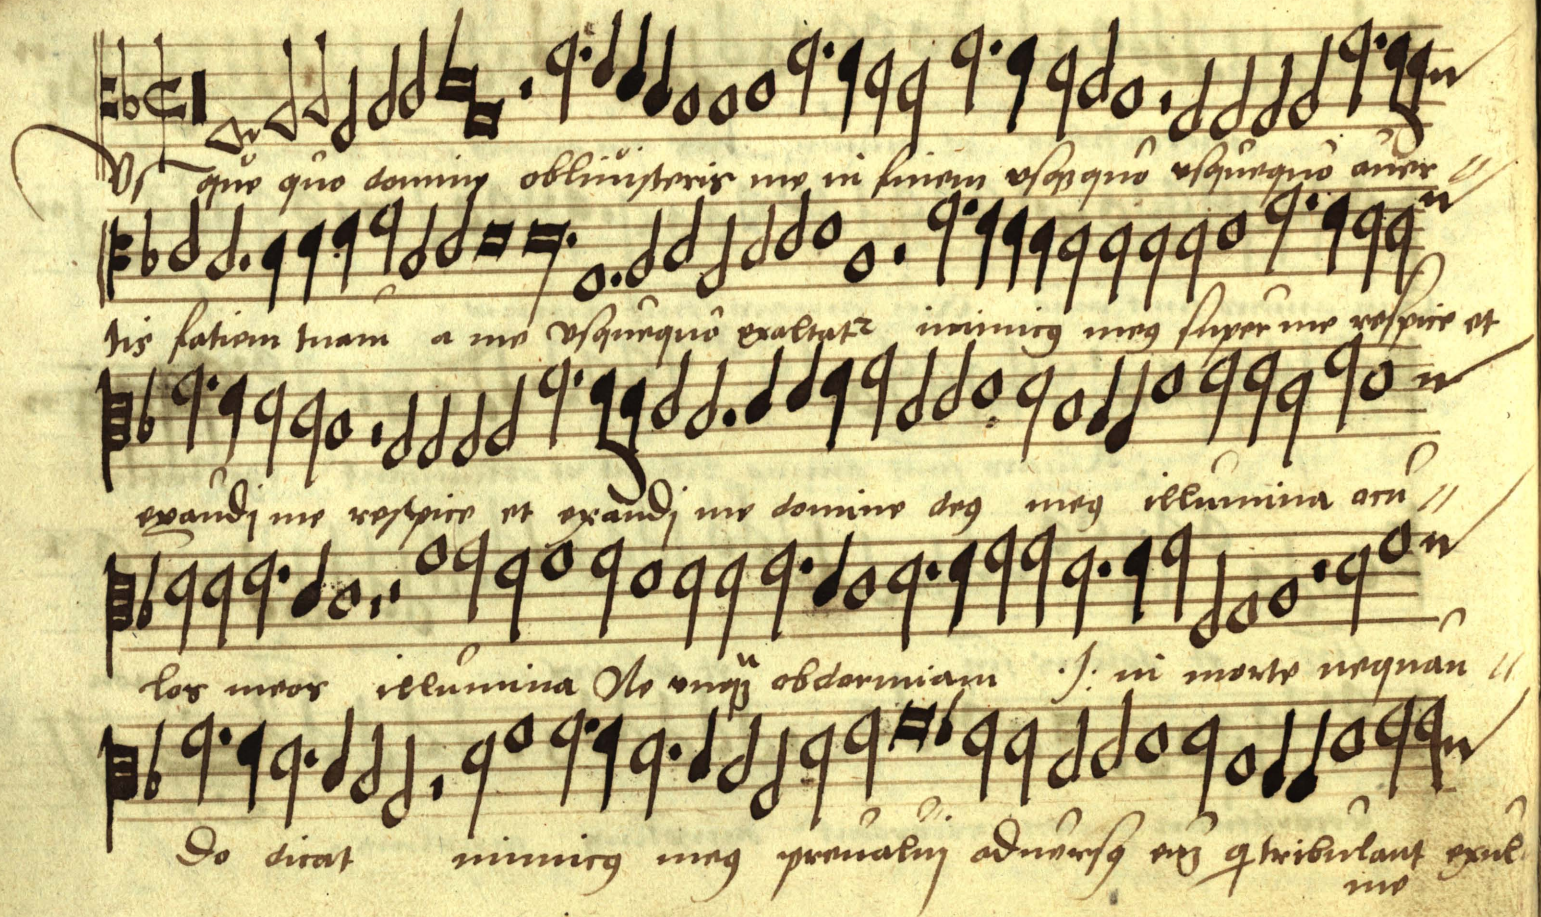 Vs que quo domine obliuisteris me in finem vsqȝ quo vsquequo auer
tis fatiem tuam a me vsquequo exaltatᷣ inimicꝰ meꝰ super me respice et
exaudi me respice et exaudi me domine deꝰ meꝰ illumina ocu
los meos illumina Ne vnqȝ obdormiam .J: in morte nequan
do dicat inimicꝰ meꝰ preualuj aduersꝰ eu͂ q tribulant exul
me